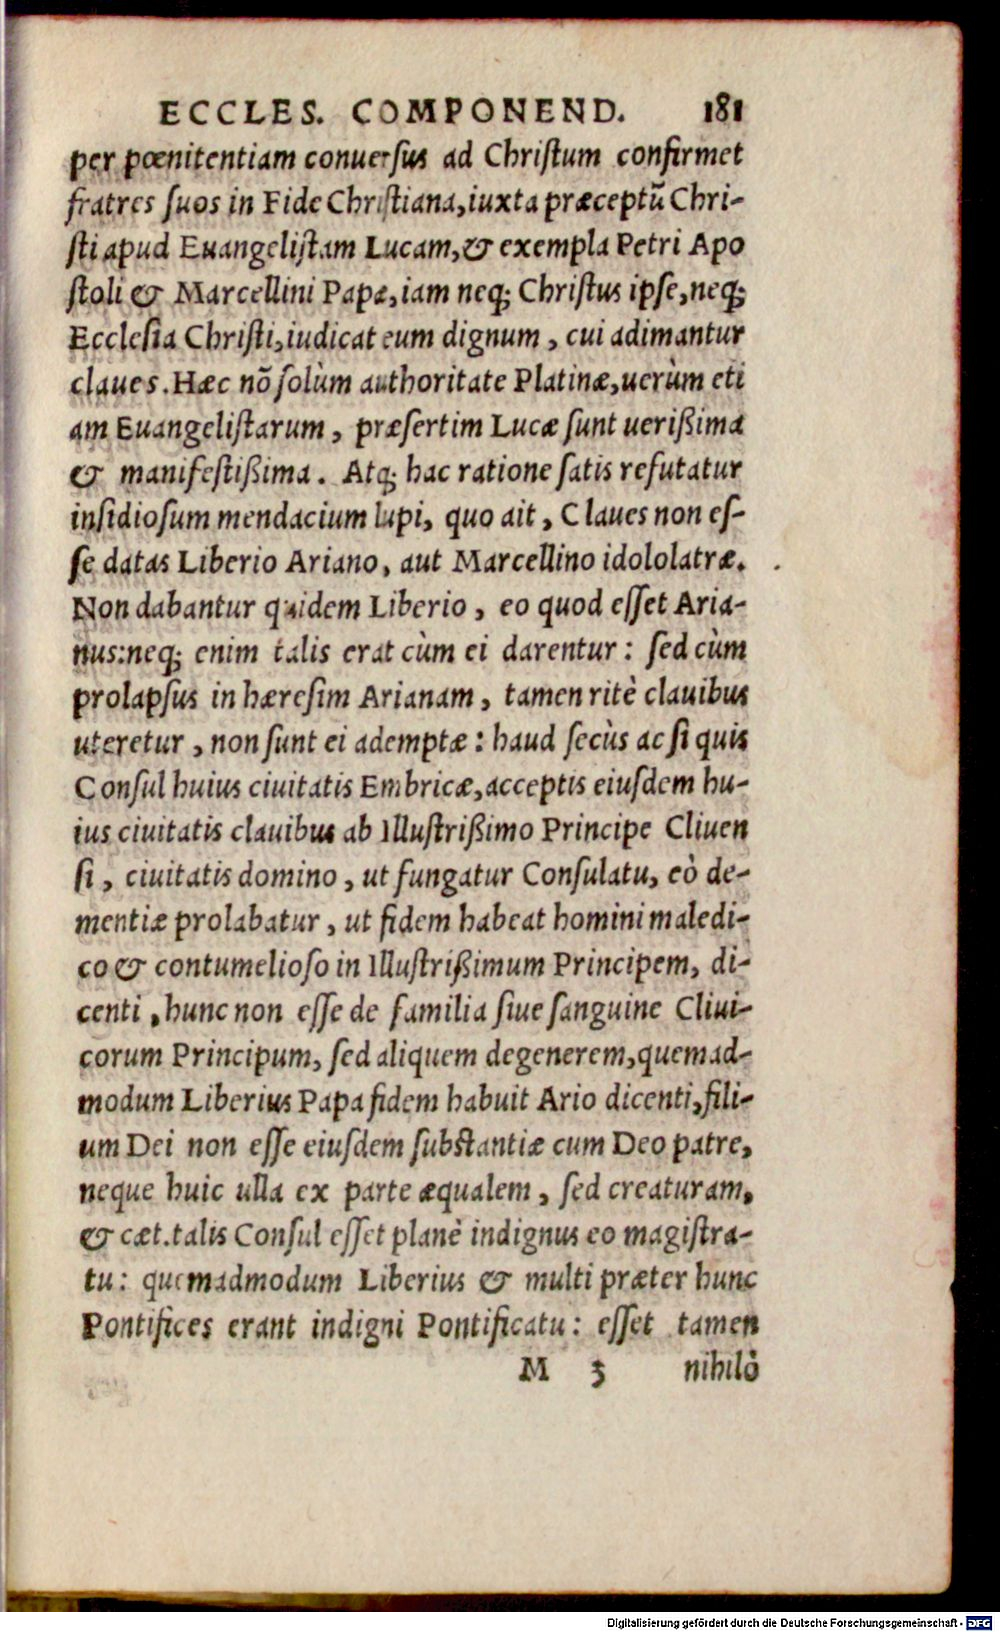 ECCLES. COMPONEND. 181
per pœnitentiam conuersus ad Chriſtum confirmet
fratres ſuos in Fide Chriſtiana,iuxta præceptũ Chri-
ſti apud Euangeliſtam Lucam,& exempla Petri Apo
ſtoli & Marcellini Papæ,iam neq; Chriſtus ipſe,neq;
Eccleſia Chriſti,iudicat eum dignum , cui adimantur
claues.Hæc nõ ſolùm authoritate Platinæ,uerùm eti
am Euangeliſtarum , præſertim Lucæ ſunt uerißima
& manifeſtißima. Atq; hac ratione ſatis refutatur
inſidioſum mendacium lupi, quo ait, Claues non eſ-
ſe datas Liberio Ariano, aut Marcellino idololatræ.
Non dabantur quidem Liberio , eo quod eſſet Aria-
nus:neq; enim talis erat cùm ei darentur : ſed cùm
prolapſus in hæreſim Arianam , tamen ritè clauibus
uteretur , non ſunt ei ademptæ : haud ſecùs ac ſi quis
Conſul huius ciuitatis Embricæ,acceptis eiuſdem hu-
ius ciuitatis clauibus ab Illuſtrißimo Principe Cliuen
ſi , ciuitatis domino , ut fungatur Conſulatu, eò de-
mentiæ prolabatur , ut fidem habeat homini maledi-
co & contumelioſo in Illuſtrißimum Principem, di-
centi , hunc non eſſe de familia ſiue ſanguine Cliui-
corum Principum, ſed aliquem degenerem,quemad-
modum Liberius Papa fidem habuit Ario dicenti,fili-
um Dei non eſſe eiuſdem ſubſtantiæ cum Deo patre,
neque huic ulla ex parte æqualem , ſed creaturam,
& cæt.talis Conſul eſſet planè indignus eo magiſtra-
tu: quemadmodum Liberius & multi præter hunc
Pontifices erant indigni Pontificatu: eſſet tamen
M 3 nihilò
Digitalisierung gefördert durch die Deutsche Forschungsgemeinschaft - DFG